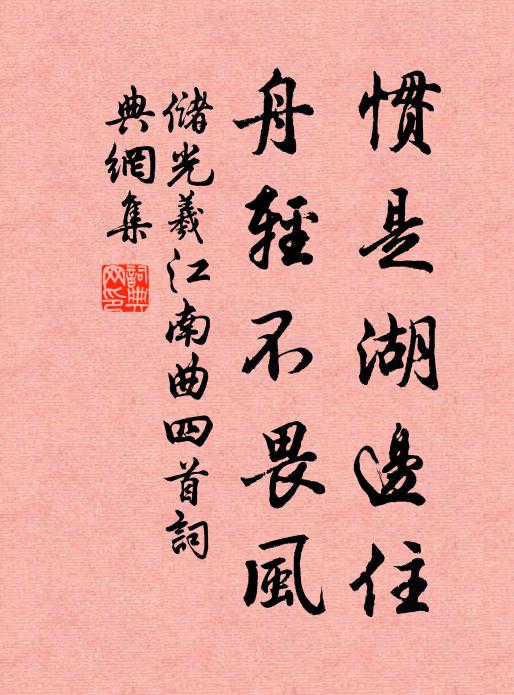 慣是湖邊住
舟輕不畏風
儲光羲江南曲四首詞
典網集
詞典
网印